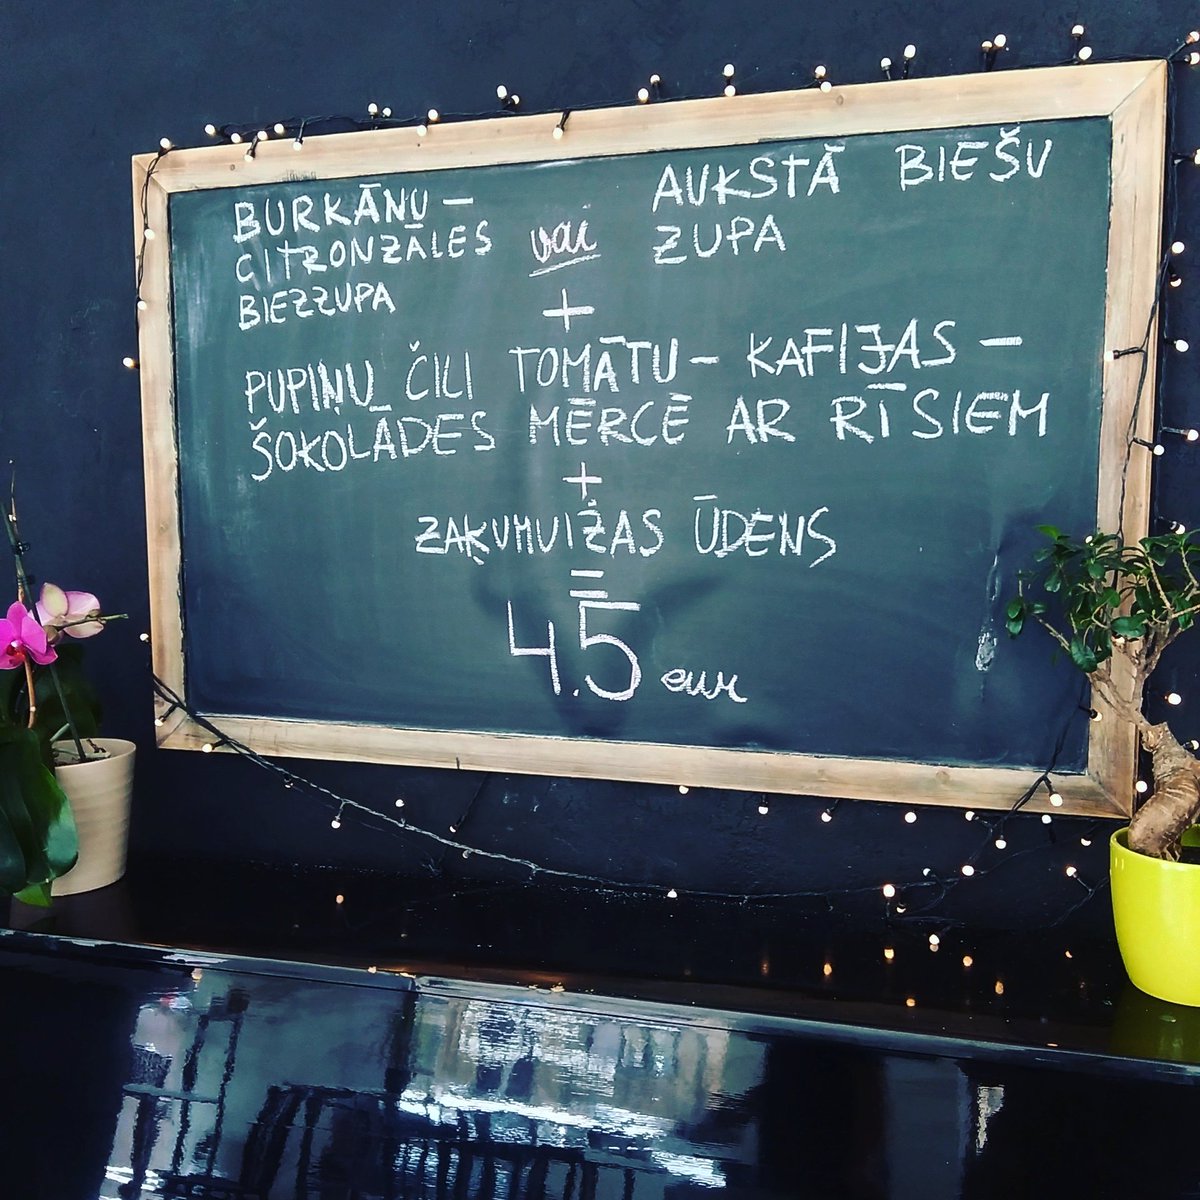 BURKĀNU-
CITRONZĀLES
BIEZZUPA
vai
AUKSTĀ BIEŠU
ZUPA
+
PUPIŅU ČILI TOMĀTU - KAFIJAS -
ŠOKOLĀDES MĒRCĒ AR RĪSIEM
+
ZAĶUMUIŽAS ŪDENS
=
4.5 eur